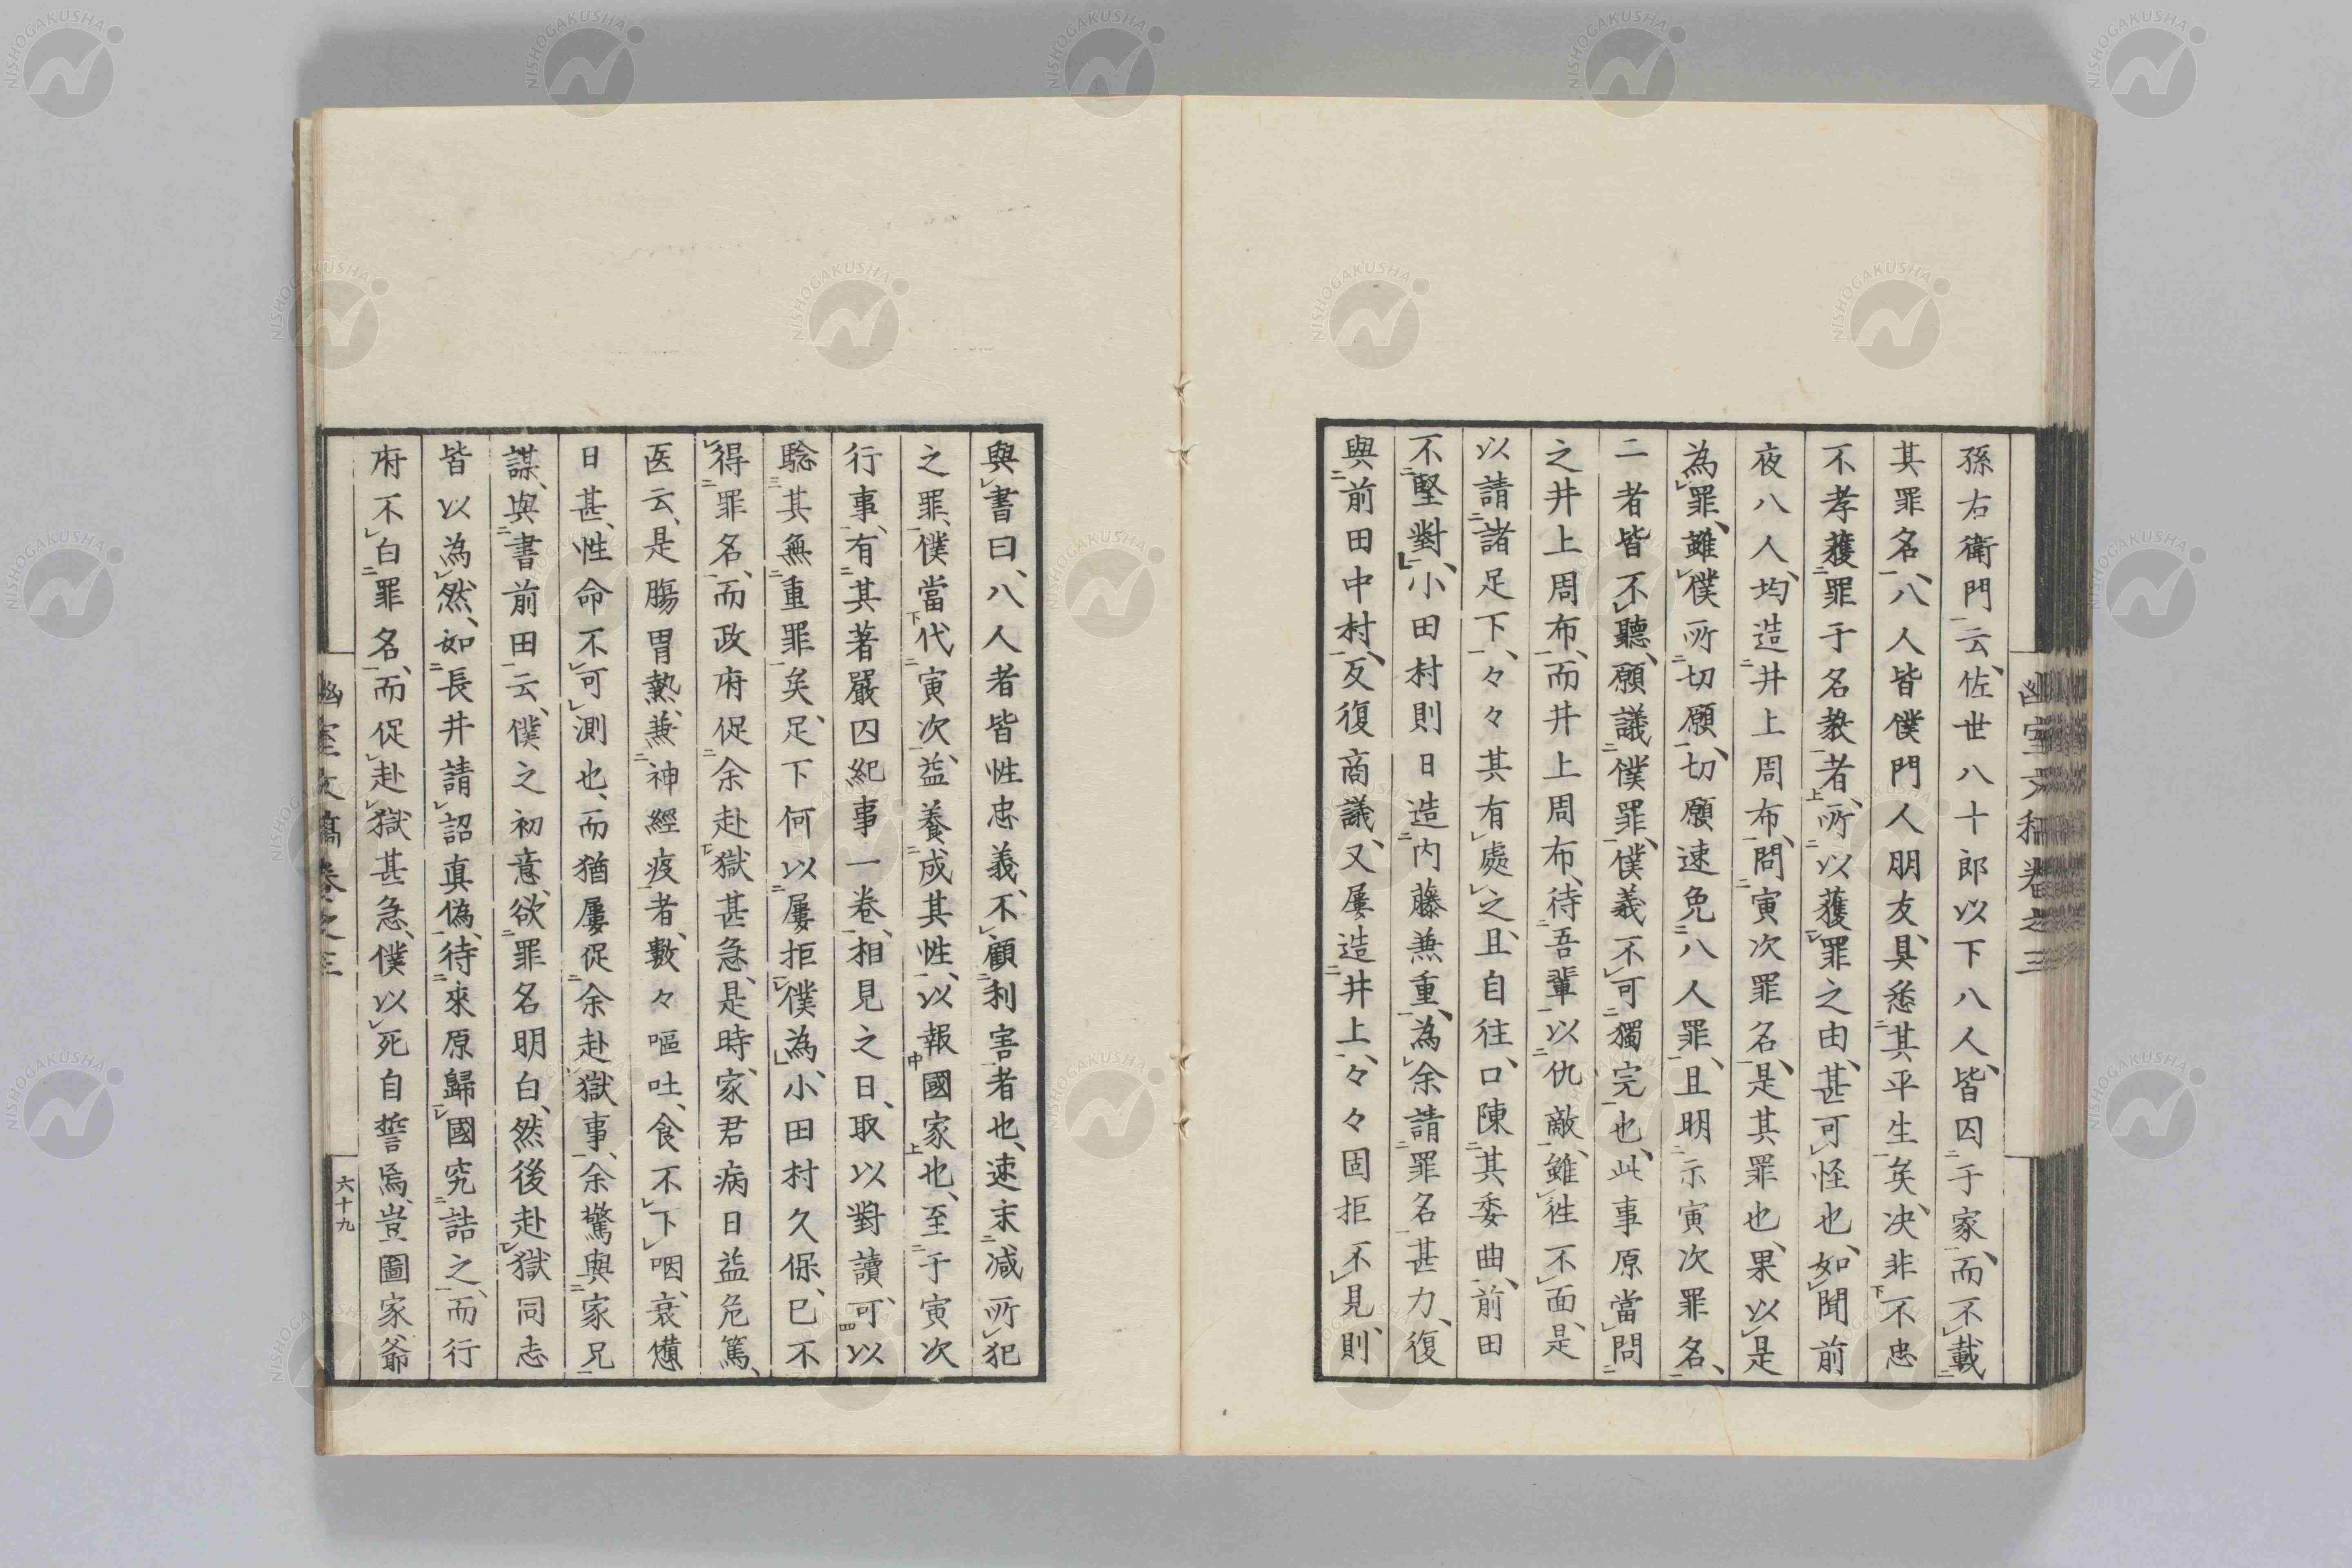 孫右衛門云、佐世八十郎以下八人、皆囚于家、而不載
其罪名、八人皆僕門人朋友、具悉其平生矣、决非不忠
不孝獲罪于名教者、所以獲罪之由、甚可怪也、如聞前
夜八人、均造井上周布、問寅次罪名、是其罪也、果以是
為罪、雖僕所切願、切願速免八人罪、且明示寅次罪名、
二者皆不聽、願議僕罪、僕義不可獨完也、此事原當問
之井上周布、而井上周布、待吾輩以仇敵、雖徃不面、是
以請諸足下、々々其有處之、且自往、口陳其委曲、前田
不堅對、小田村則日造内藤兼重、為余請罪名甚力、復
與前田中村、反復商議、又屢造井上、々々固拒不見、則
與書曰、八人者皆性忠義、不顧利害者也、速末减所犯
之罪、僕當代寅次、益養成其性、以報國家也、至于寅次
行事、有其著嚴囚紀事一卷、相見之日、取以對讀、可以
騐其無重罪矣、足下何以屢拒僕為、小田村久保、已不
得罪名、而政府促余赴獄甚急、是時、家君病日益危篤、
医云、是腸胃熱、兼神經疫者、數々嘔吐、食不下咽、衰憊
日甚、性命不可測也、而猶屢促余赴獄事、余驚與家兄
謀、與書前田云、僕之初意、欲罪名明白、然後赴獄同志
皆以為然、如長井請詔真偽、待來原歸國究詰之、而行
府不白罪名、而促赴獄甚急、僕以死自誓焉、豈圖家爺
幽室文稿卷之三
六十九